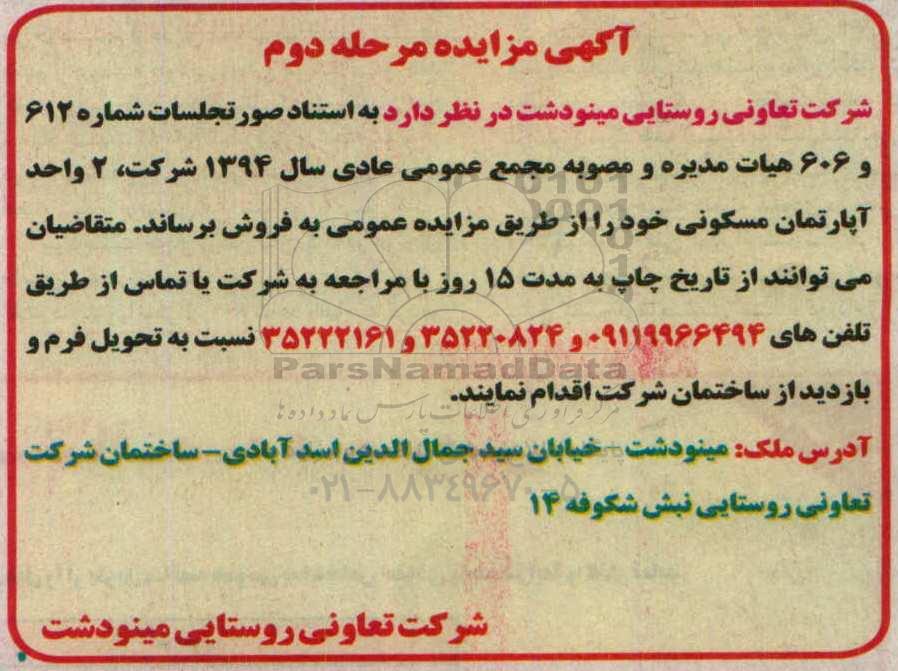 آگهی مزایده مرحله دوم
شرکت تعاونی روستایی مینودشت در نظر دارد به استناد صورتجلسات شماره ۶۱۲
و ۶۰۶ هیات مدیره و مصوبه مجمع عمومی عادی سال ۱۳۹۴ شرکت، ۲ واحد
آپارتمان مسکونی خود را از طریق مزایده عمومی به فروش برساند. متقاضیان
می توانند از تاریخ چاپ به مدت ۱۵ روز با مراجعه به شرکت یا تماس از طریق
تلفن های ۰۹۱۱۹۹۶۶۴۹۴ و ۳۵۲۲۰۸۲۴ و ۳۵۲۲۲۱۶۱ نسبت به تحویل فرم و
ParsNamadData
بازدید از ساختمان شرکت اقدام نمایند.
مرکز فرآوری اطلاعات پارس نماد داده ها
آدرس ملک: مینودشت - خیابان سید جمال الدین اسد آبادی - ساختمان شرکت
۰۲۱-۸۸۳۴۹۶۷۰-۵
تعاونی روستایی نبش شکوفه ۱۴
شرکت تعاونی روستایی مینودشت